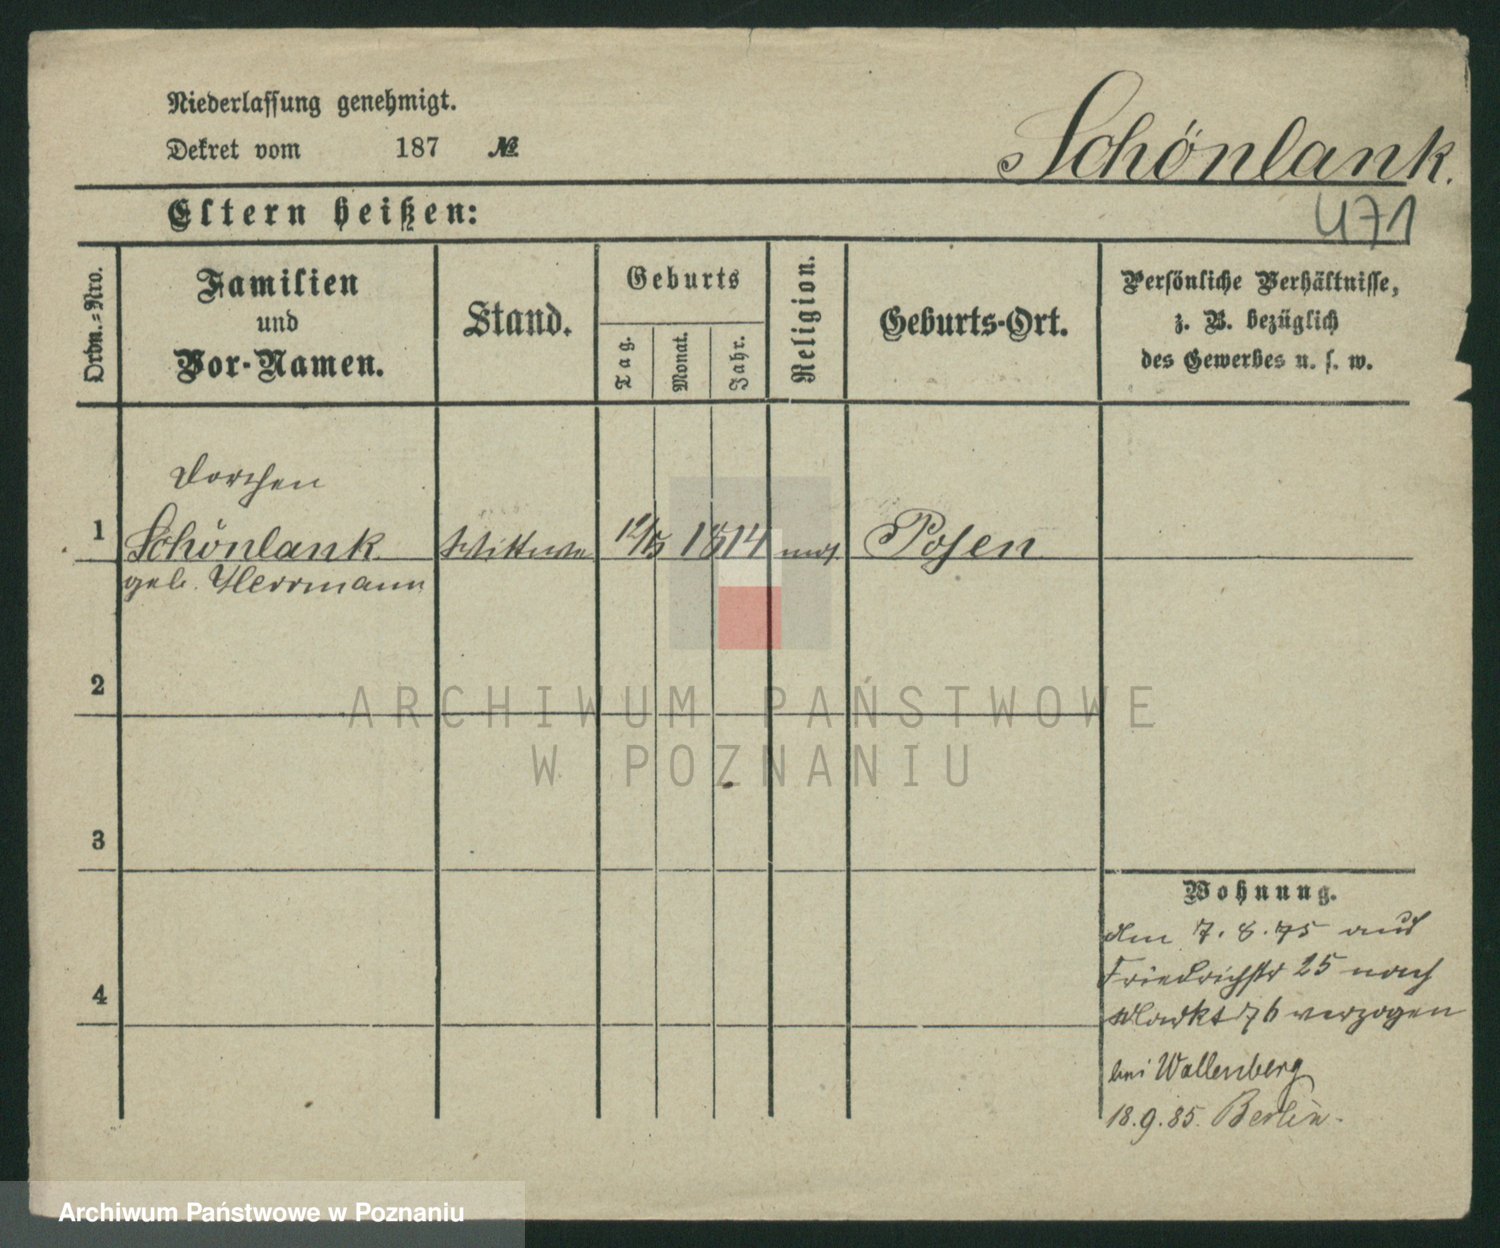 Niederlassung genehmigt.
Dekret vom 187 №
Schönlank.
Eltern heißen:
471
Ordn.-Nro.
Familien
und
Vor-Namen.
Stand.
Geburts
Tag.
Monat.
Jahr.
Religion.
Geburts-Ort.
Persönliche Verhältnisse,
z. B. bezüglich
des Gewerbes u. s. w.
Dorchen
1 Schönlank Wittwe 1814 mos. Posen
geb. Herrmann
2
ARCHIWUM PAŃSTWOWE
W POZNANIU
3
Wohnung.
Am 7. 8. 75 aus
Friedrichstr 25 nach
4
Markt 76 verzogen
bei Wallenberg
18.9.85. Berlin.
Archiwum Państwowe w Poznaniu